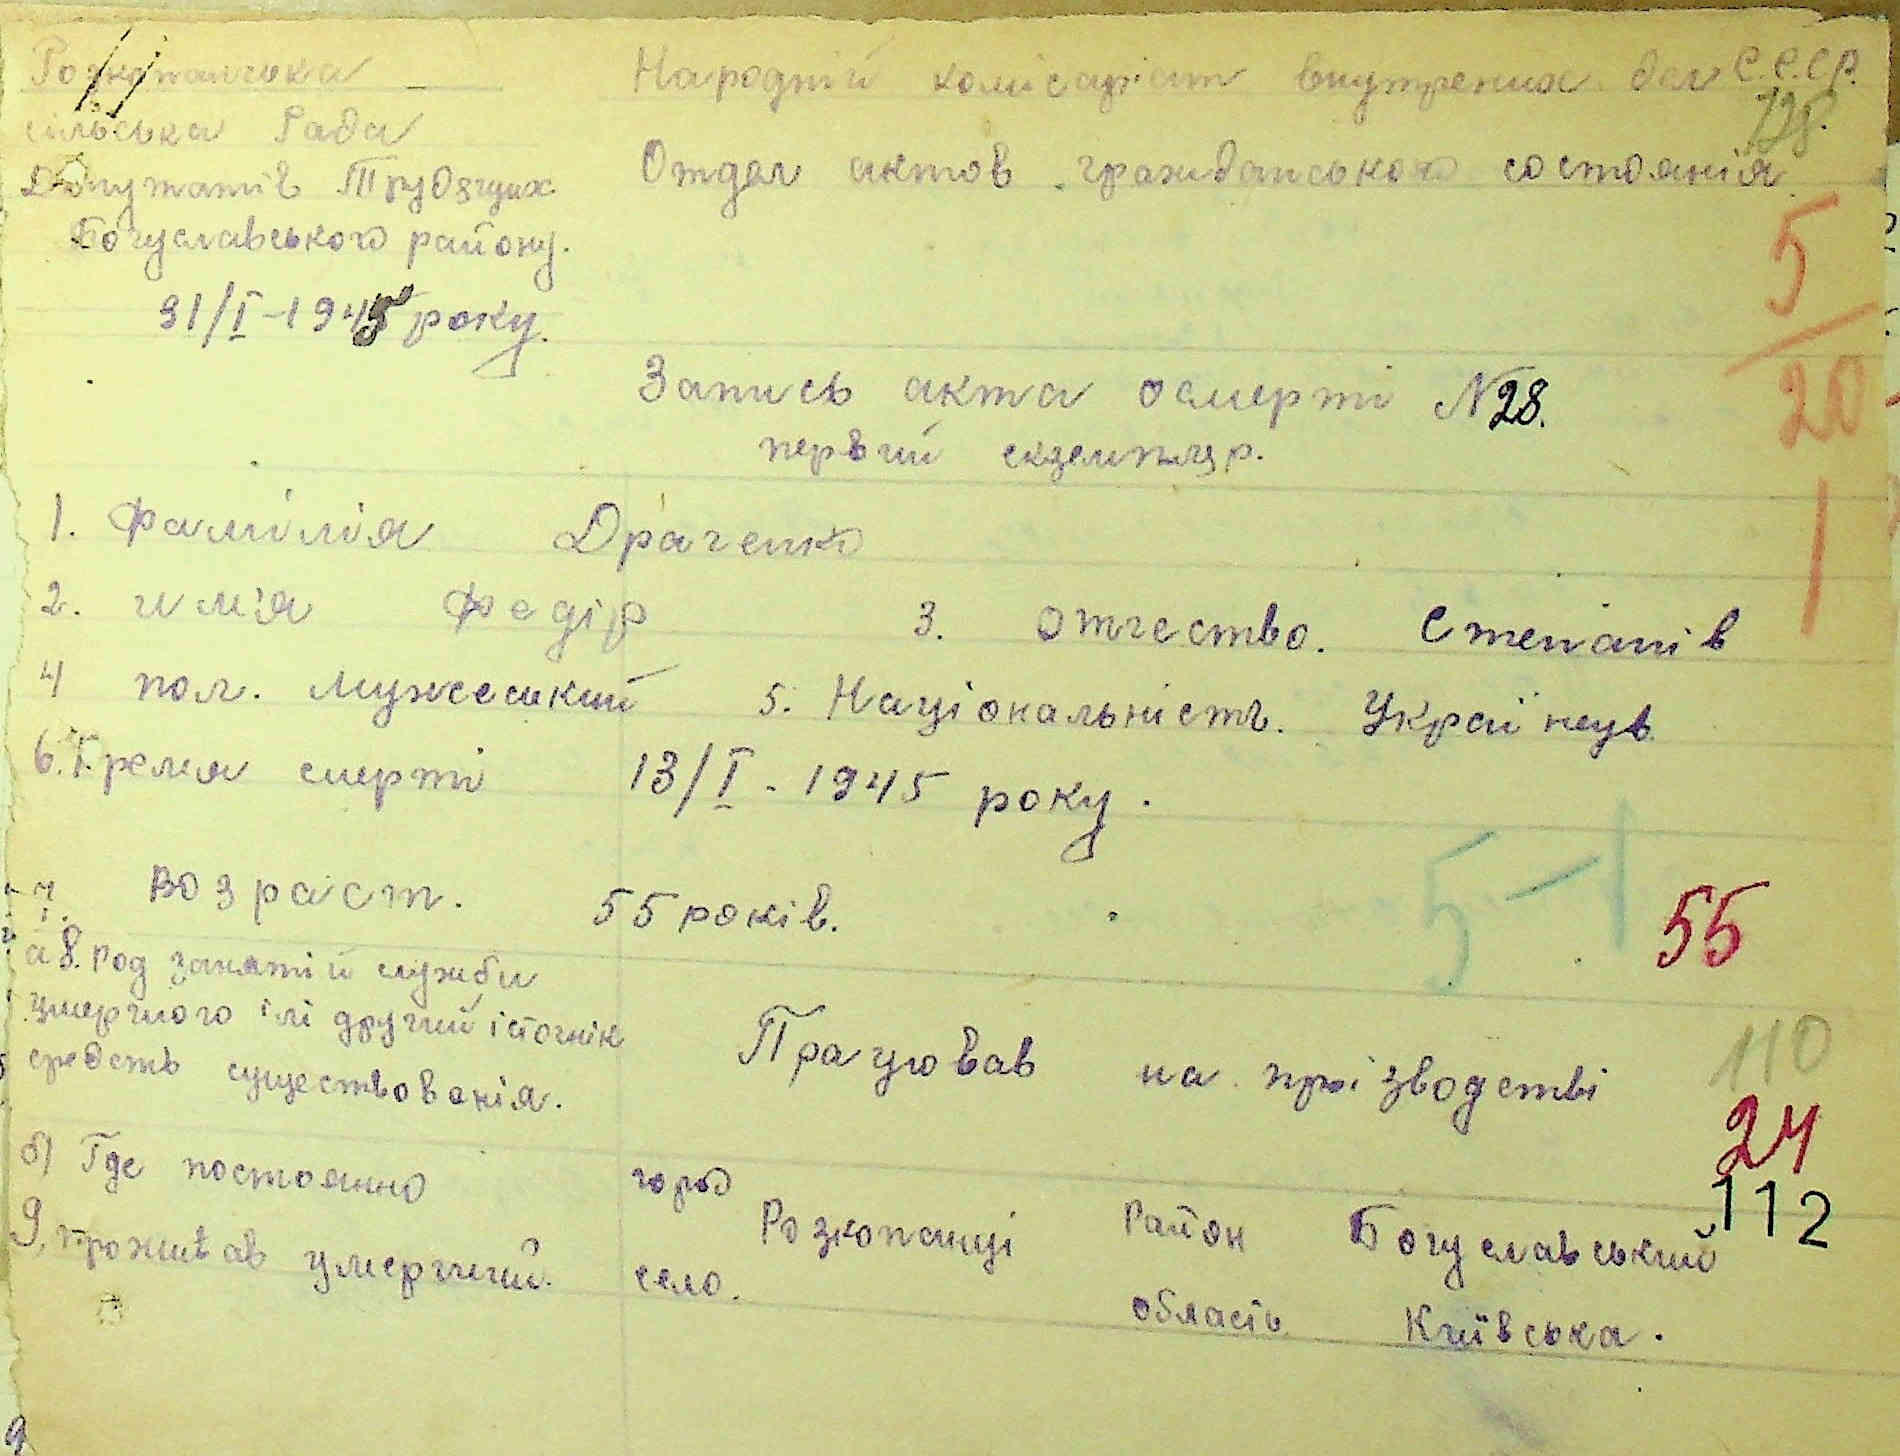 сільська Рада
Депутатів Трудящих
Богуславського району.
31/I-1945 року.
Народній комісаріат внутрених дел С.С.С.Р.
128.
Отдел актов гражданського состоянія
5
20
1
Запись акта о смерті N 28.
первий екземпляр.
1. Фамілія Драченко
2. имія Федір 3. отчество. Степанів
4 пол. мужеський 5. Національність. Украінець
6. Время смерті 13/I - 1945 року.
7. Возраст. 55 років.
5-1
55
а 8. род занятій служби
умершого ілі другий істочнік
средств существованія.
Працював на проізводстві
110
24
112
б) Где постоянно
9. проживав умерший.
город
село.
Розкопанці
Район Богуславський
область Київська.